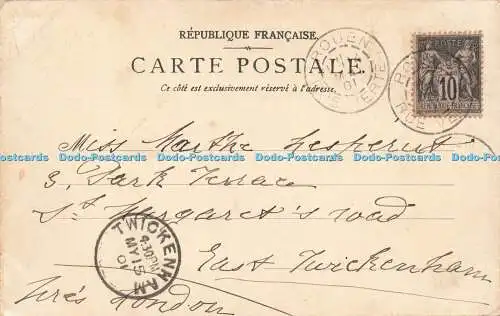 RÉPUBLIQUE FRANÇAISE.
CARTE POSTALE.
Ce côté est exclusivement réservé à l'adresse.
ROUEN
01
RUE VERTE
POSTE
10
Miss Marthe Lesperut
Dodo Postcards Dodo Postcards Dodo Postcards Dodo Postcards Dodo Postcards Dodo Postcards
3, Park Terrace
St Margaret's road
East Twickenham
Près London
TWICKENHAM
4.30PM
MY 15
01